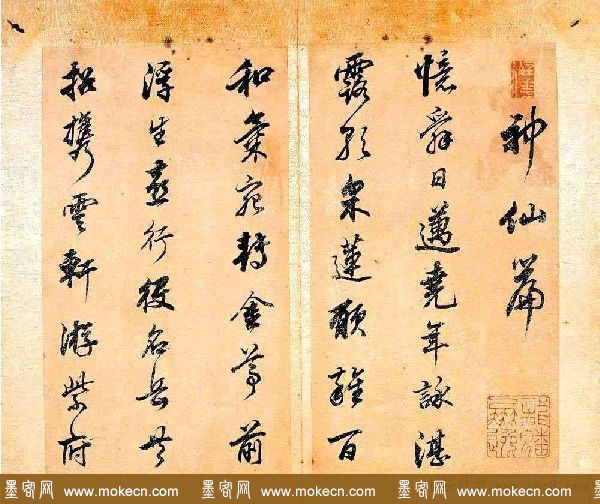 神仙篇
憶舜日邁堯年詠湛
露歌采蓮願雜百
和氣宛轉金尊前
浮生厭行役名岳共
招攜雲軒游紫府
墨客网 www.mokecn.com 墨客网 www.mokecn.com 墨客网 www.mokecn.com